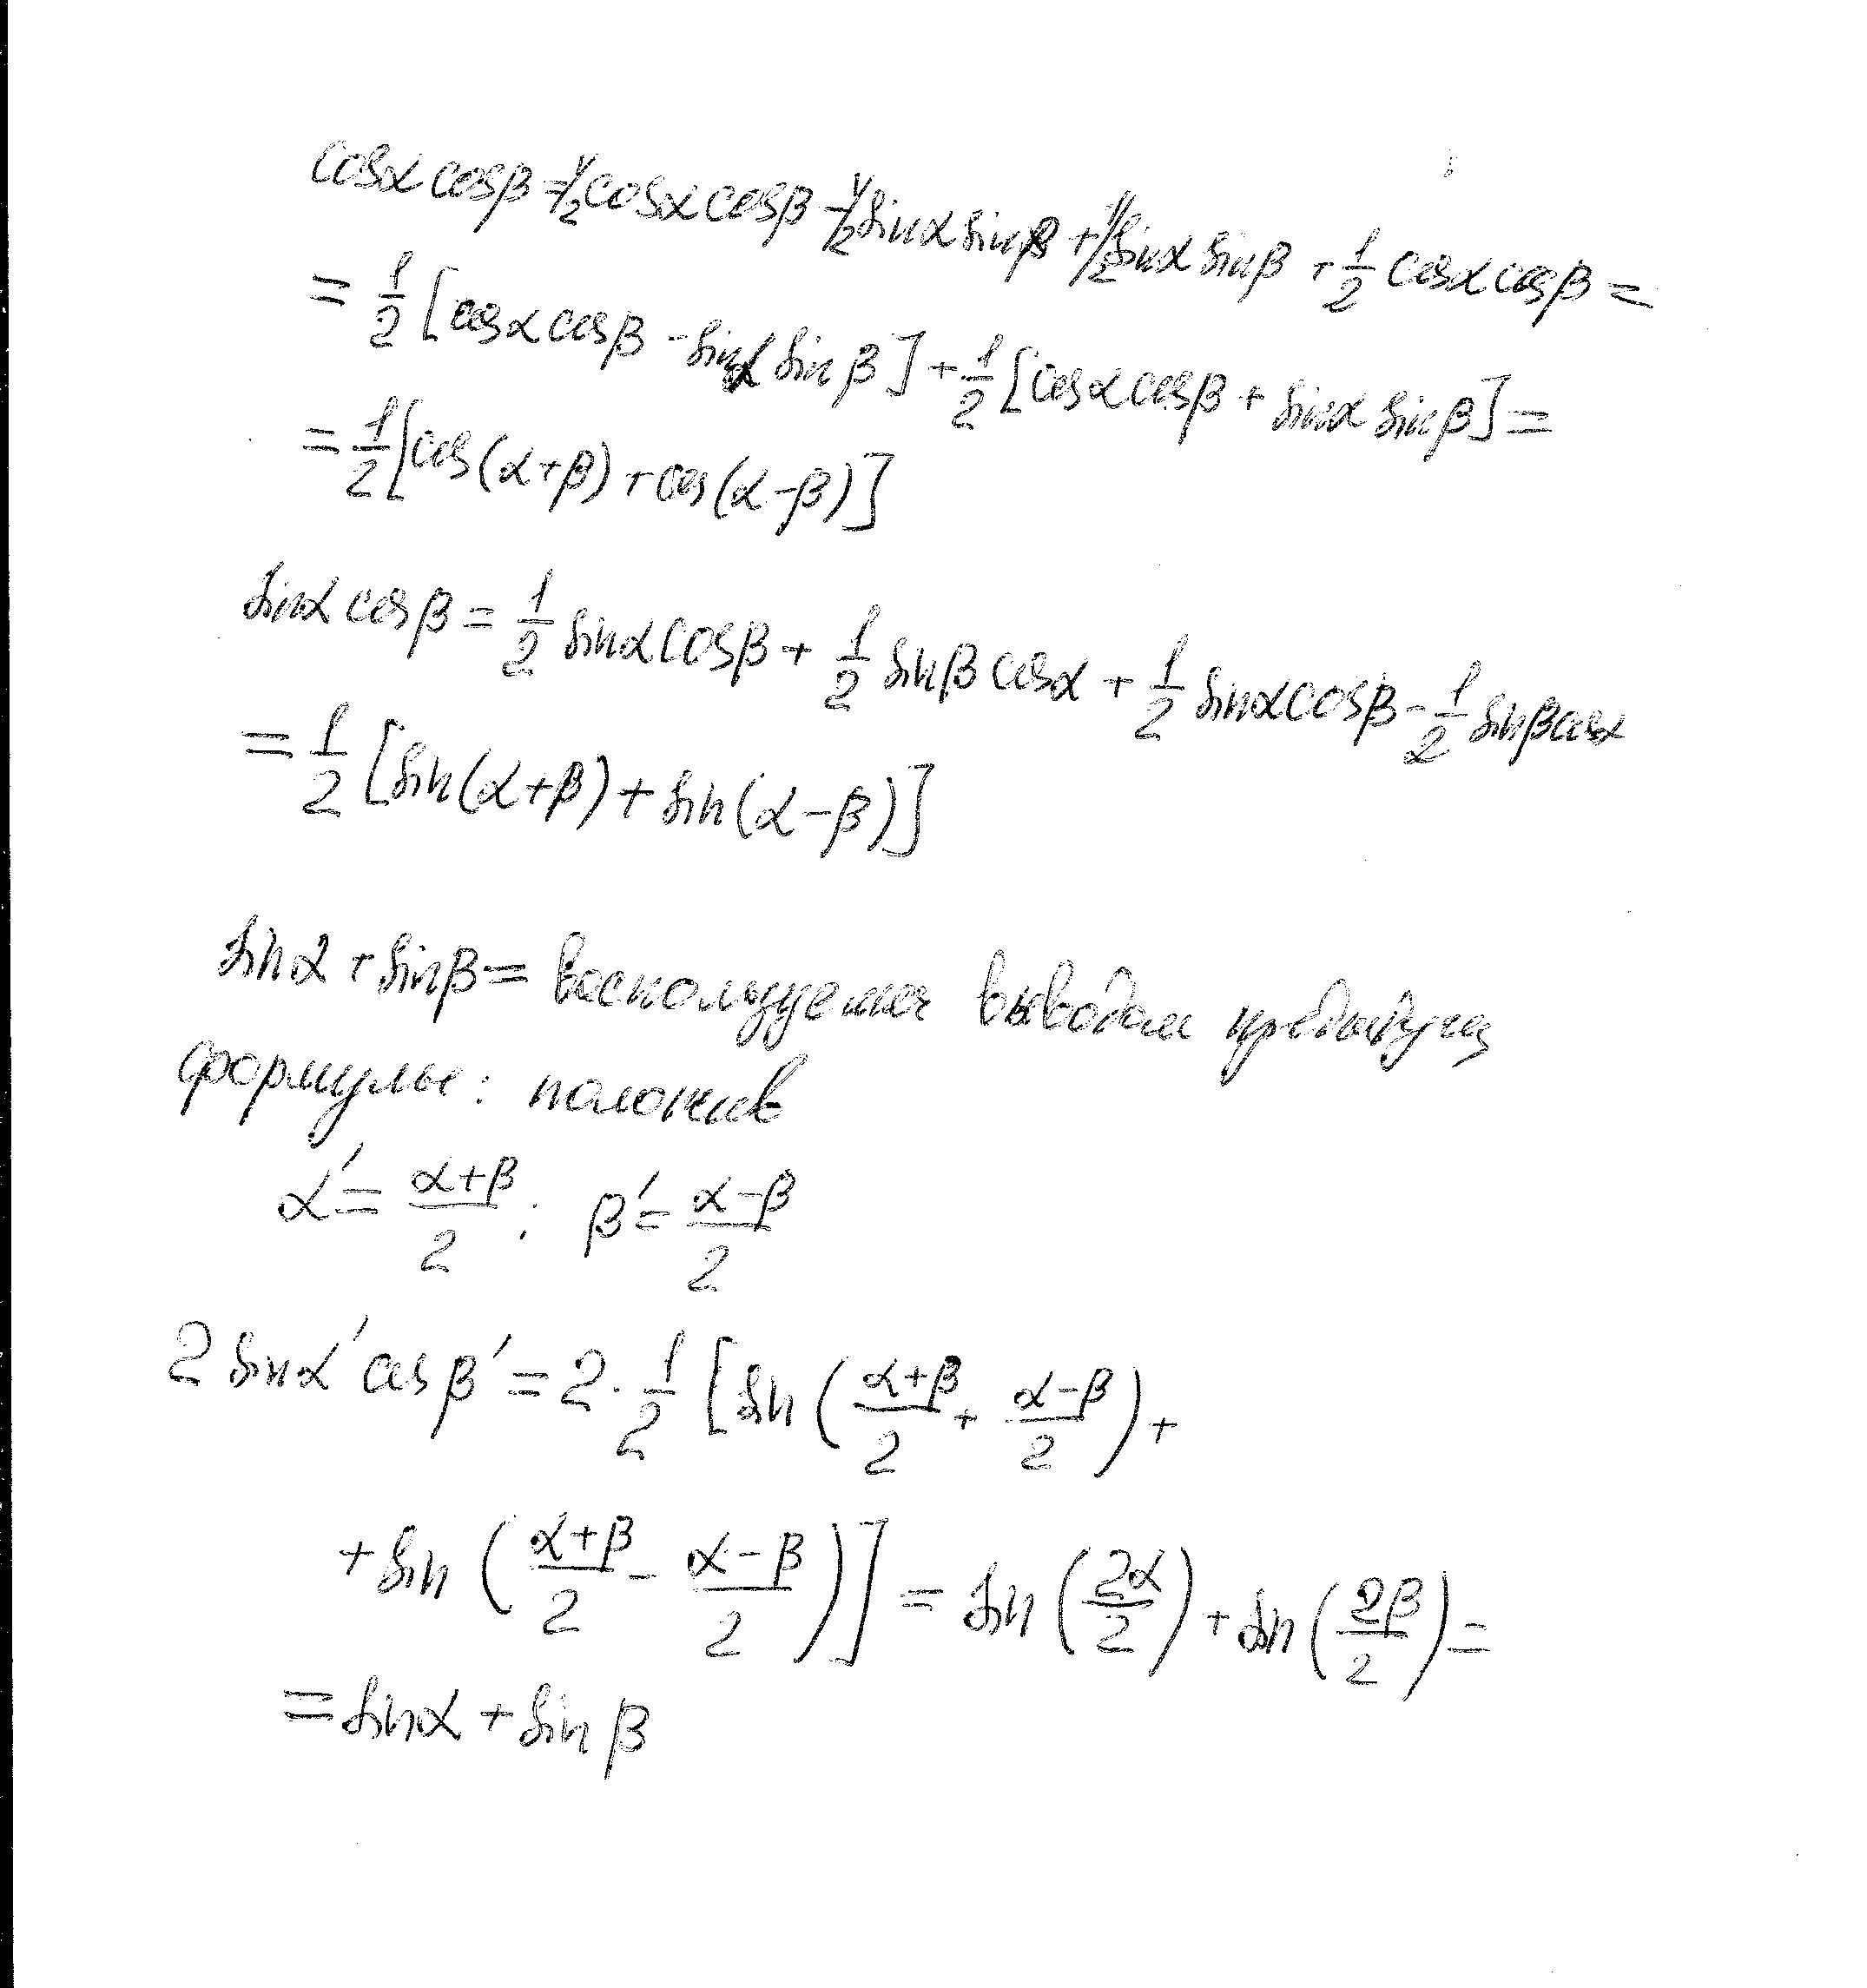 cosα cosβ = 1/2 cosα cosβ - 1/2 sinα sinβ + 1/2 sinα sinβ + 1/2 cosα cosβ =
= 1/2 [cosα cosβ - sinα sinβ] + 1/2 [cosα cosβ + sinα sinβ] =
= 1/2 [cos(α+β) + cos(α-β)]
sinα cosβ = 1/2 sinα cosβ + 1/2 sinβ cosα + 1/2 sinα cosβ - 1/2 sinβ cosα
= 1/2 [sin(α+β) + sin(α-β)]
sinα + sinβ = воспользуемся выводом предыдущ
формулы: положив
α' = (α+β)/2 ; β' = (α-β)/2
2 sinα' cosβ' = 2 · 1/2 [sin((α+β)/2 + (α-β)/2) +
+ sin((α+β)/2 - (α-β)/2)] = sin(2α/2) + sin(2β/2) =
= sinα + sinβ